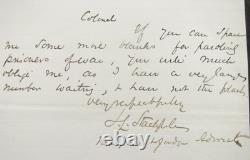 Colonel
If you can spare
me some more blanks for paroling
prisoners of war, you will much
oblige me, as I have a very large
number waiting, & have not the blanks
very respectfully